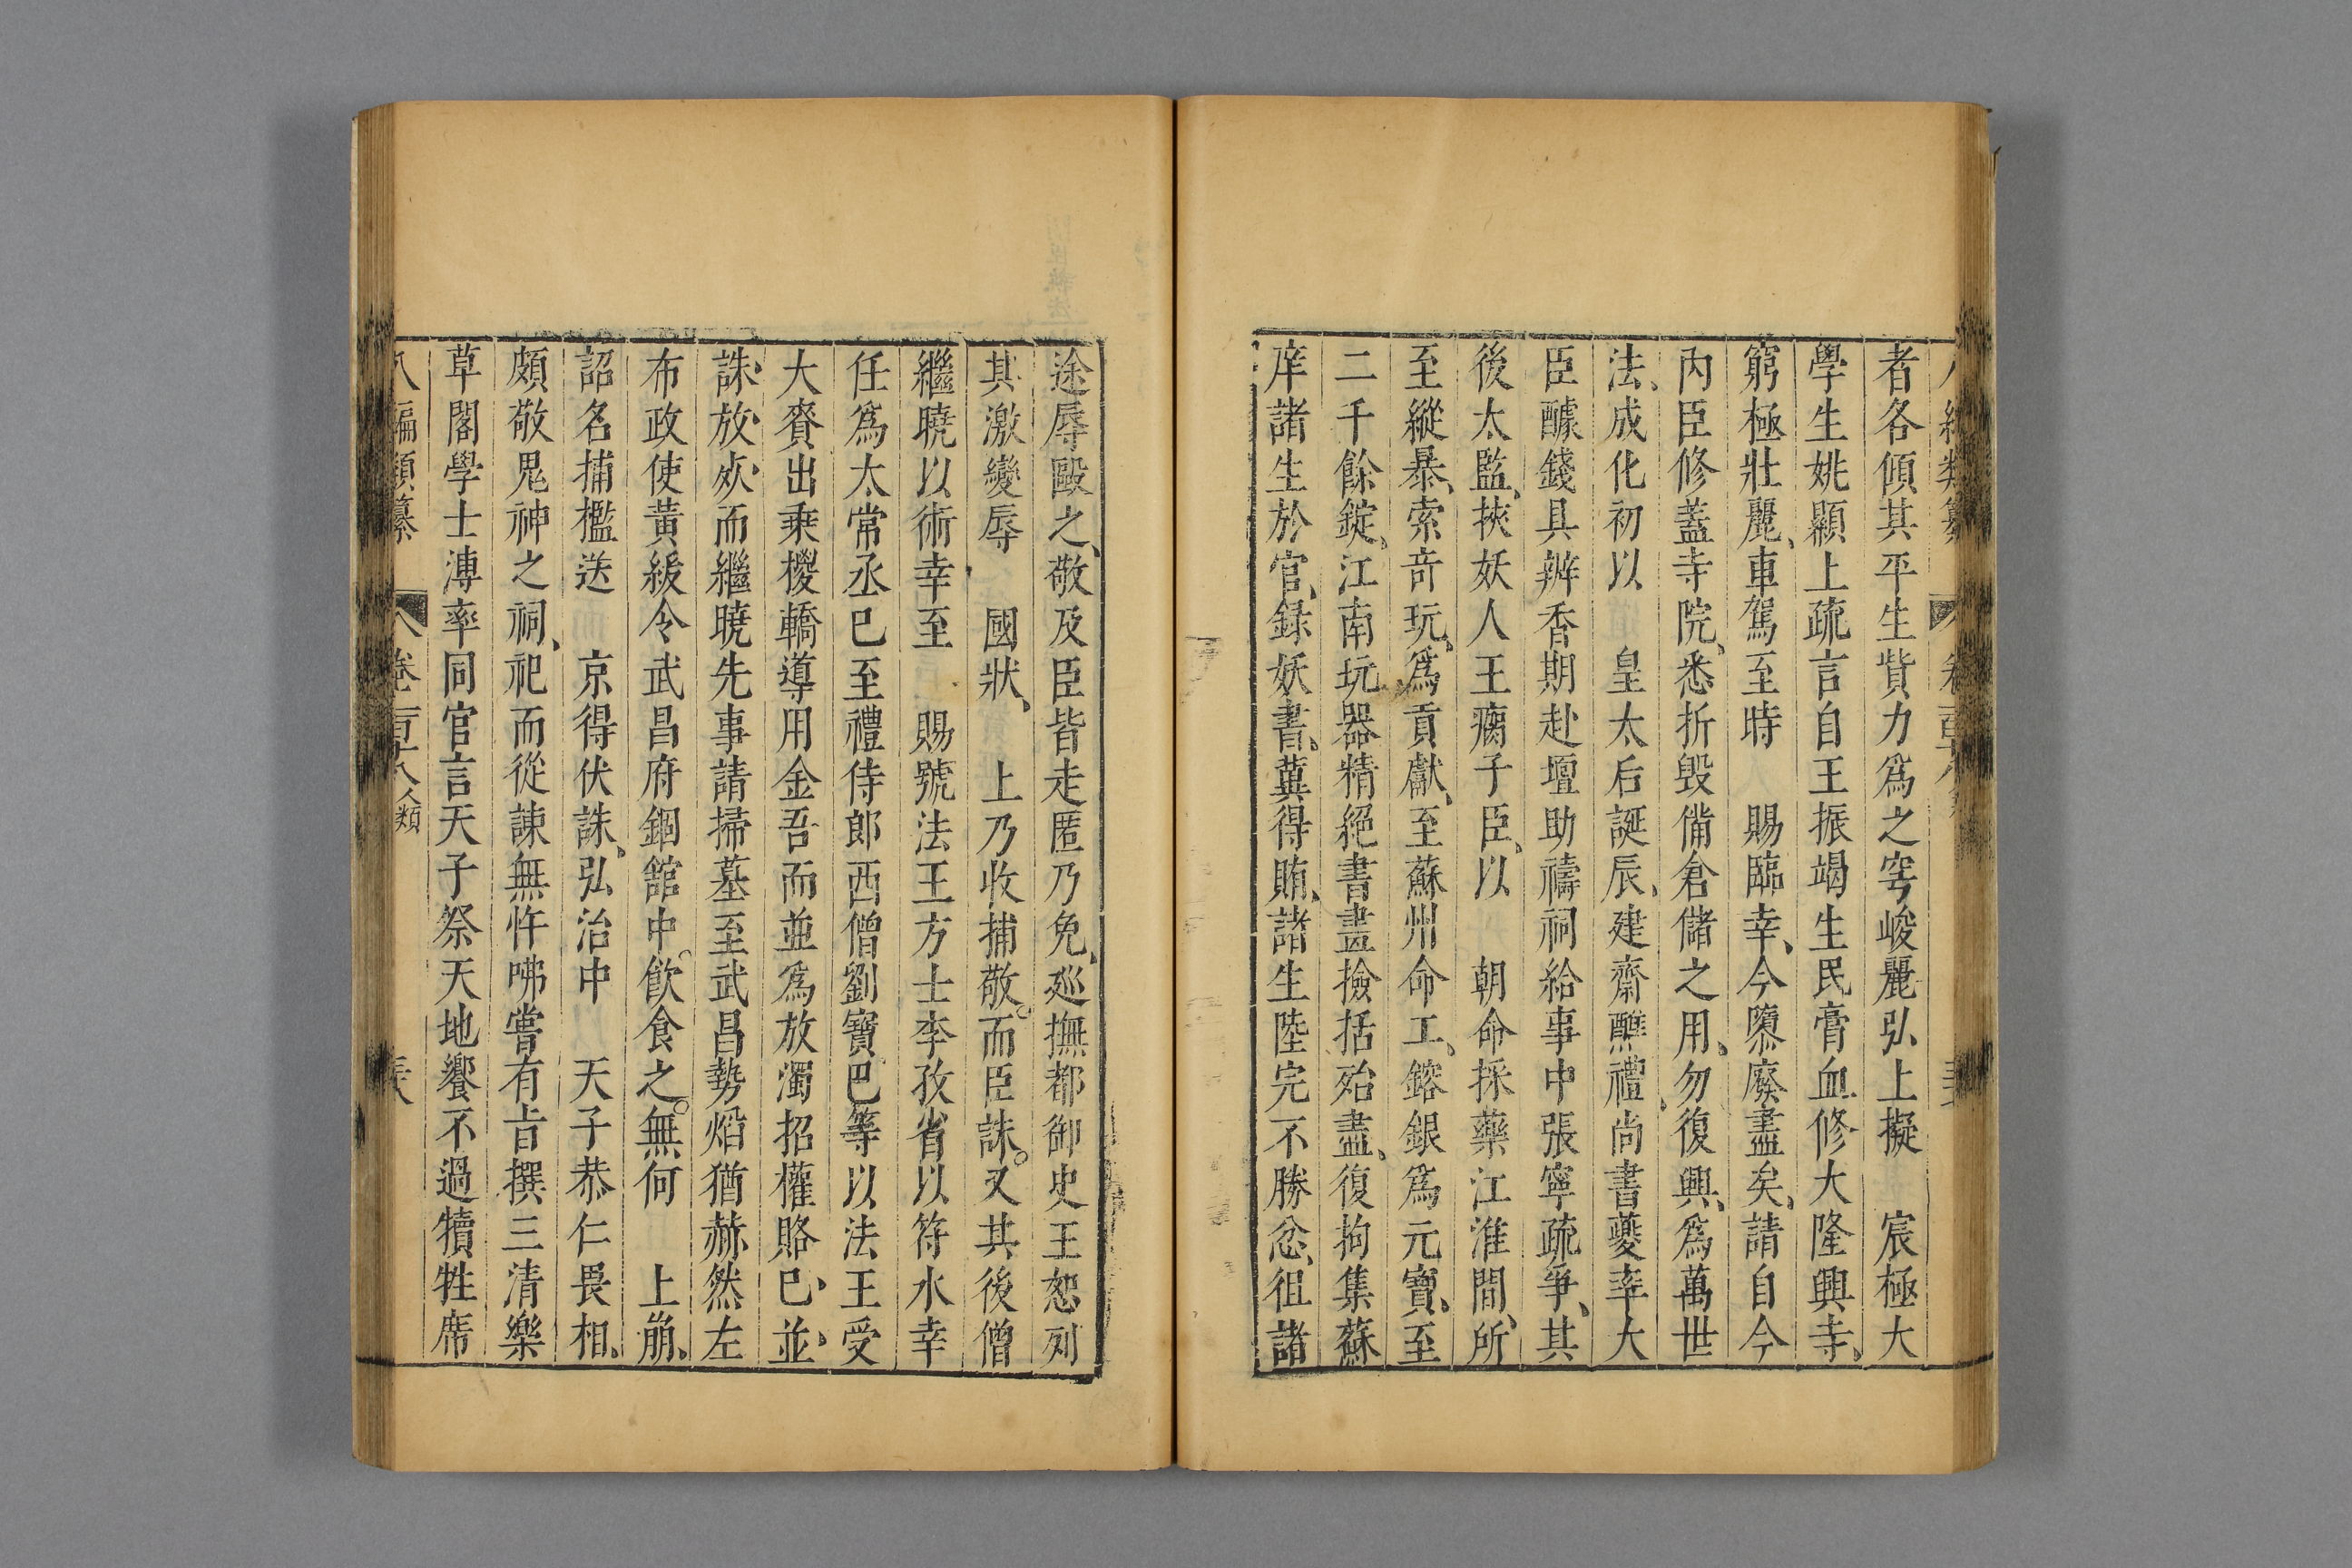 者各傾其平生貲力爲之窄峻麗弘上擬　宸極大
學生姚顯上疏言自王振竭生民膏血修大隆興寺、
窮極壯麗、車駕至時　賜臨幸、今隳廢盡矣、請自今
内臣修蓋寺院、悉折毀備倉儲之用、勿復興、爲萬世
法、成化初以　皇太后誕辰、建齋醮禮、尚書夔率大
臣醵錢具辦香期赴壇助禱祠給事中張寧疏爭、其
後太監、挾妖人王瘸子臣、以　朝命採藥江淮間、所
至縱暴、索竒玩、爲貢獻、至蘇州命工、鎔銀爲元寶、至
二千餘錠、江南玩器精絕書畫撿括殆盡、復拘集蘇
庠諸生於官、錄妖書、冀得賄、諸生陸完不勝忿、徂諸
途辱毆之、敬及臣皆走匿乃免、巡撫都御史王恕列
其激變辱　國狀、　上乃收捕敬。而臣誅。又其後僧
繼曉以術幸至　賜號法王方士李孜省以符水幸
任爲太常丞巳至禮侍郎西僧劉寶巴等以法王受
大賚出乘椶轎導用金吾而並爲放濁招權賂、巳、並、
誅、放、夾、而繼曉先事請掃墓至武昌勢焰猶赫然左
布政使黃紱令武昌府錮舘中。飲食之。無何　上崩、
詔名捕檻送　京得伏誅、弘治中　天子恭仁畏相、
頗敬鬼神之祠、祀而從諫無忤咈嘗有旨撰三清樂
草閣學士溥率同官言天子祭天地饗不過犢牲席
八編類纂　卷一百十八　人類